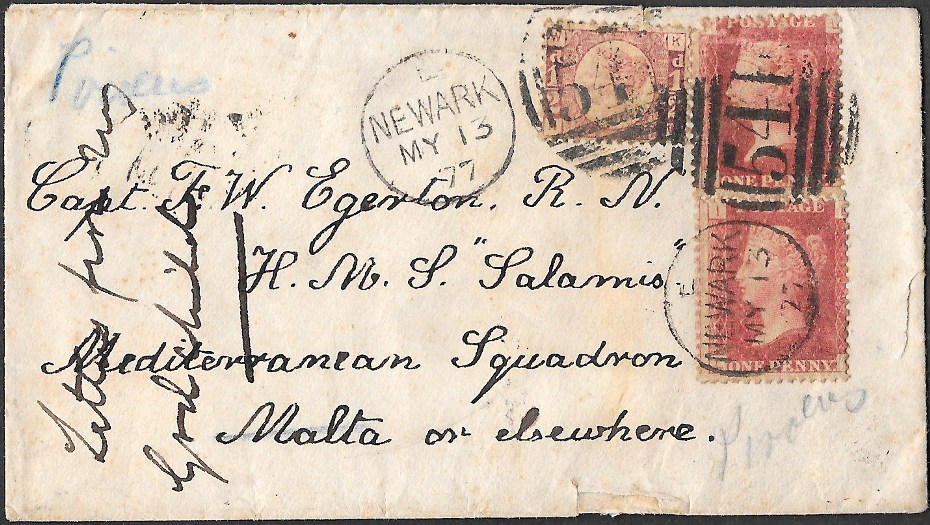 Piraeus
NEWARK
MY 13
77
1/2
d
K
541
POSTAGE
ONE PENNY
541
Capt. F. W. Egerton, R. N.
H. M. S. "Salamis"
Mediterranean Squadron
Malta or elsewhere.
POSTAGE
ONE PENNY
NEWARK
MY 13
77
Letter from
Piraeus